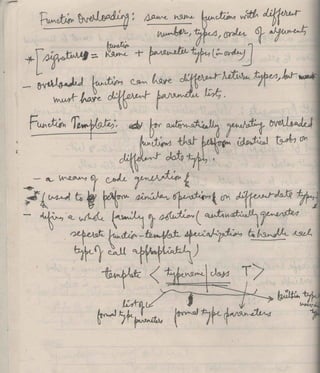 Function Overloading: same name functions with different
numbers, types, order of arguments
* [signature = function name + parameter types (in order)]
- overloaded function can have different return types, but
must have different parameter lists.
Function Templates: for automatically generating overloaded
functions that perform identical tasks on
different data types.
- a means of code generation
* (used to perform similar operations on different data types)
- defines a whole family of solutions (automatically generates
seperate function-template specializations to handle each
type of call appropriately)
template < typename | class T >
list of
formal type
parameters
formal type parameters
builtin type